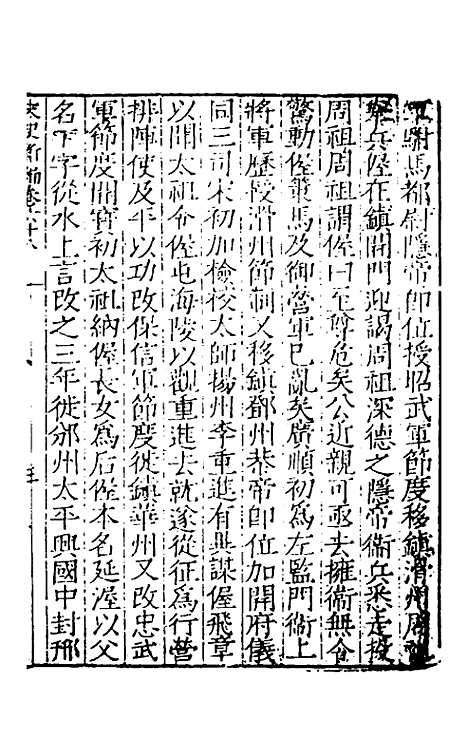 軍駙馬都尉隱帝即位授昭武軍節度移鎮滑州周祖
舉兵偓在鎮開門迎謁周祖深德之隱帝衞兵悉走投
周祖周祖謂偓曰至尊危矣公近親可亟去擁衞無令
驚動偓策馬及御營軍已亂矣廣順初爲左監門衞上
將軍歷投滑州節制又移鎮鄧州恭帝即位加開府儀
同三司宋初加檢校太師揚州李重進有異謀偓飛章
以聞太祖令偓屯海陵以觀重進去就遂從征爲行營
排陣使及平以功改保信軍節度徙鎮華州又改忠武
軍節度開寳初太祖納偓長女爲后偓本名延渥以父
名下字從水上言改之三年徙邠州太平興國中封邢
宋史新編卷六十八